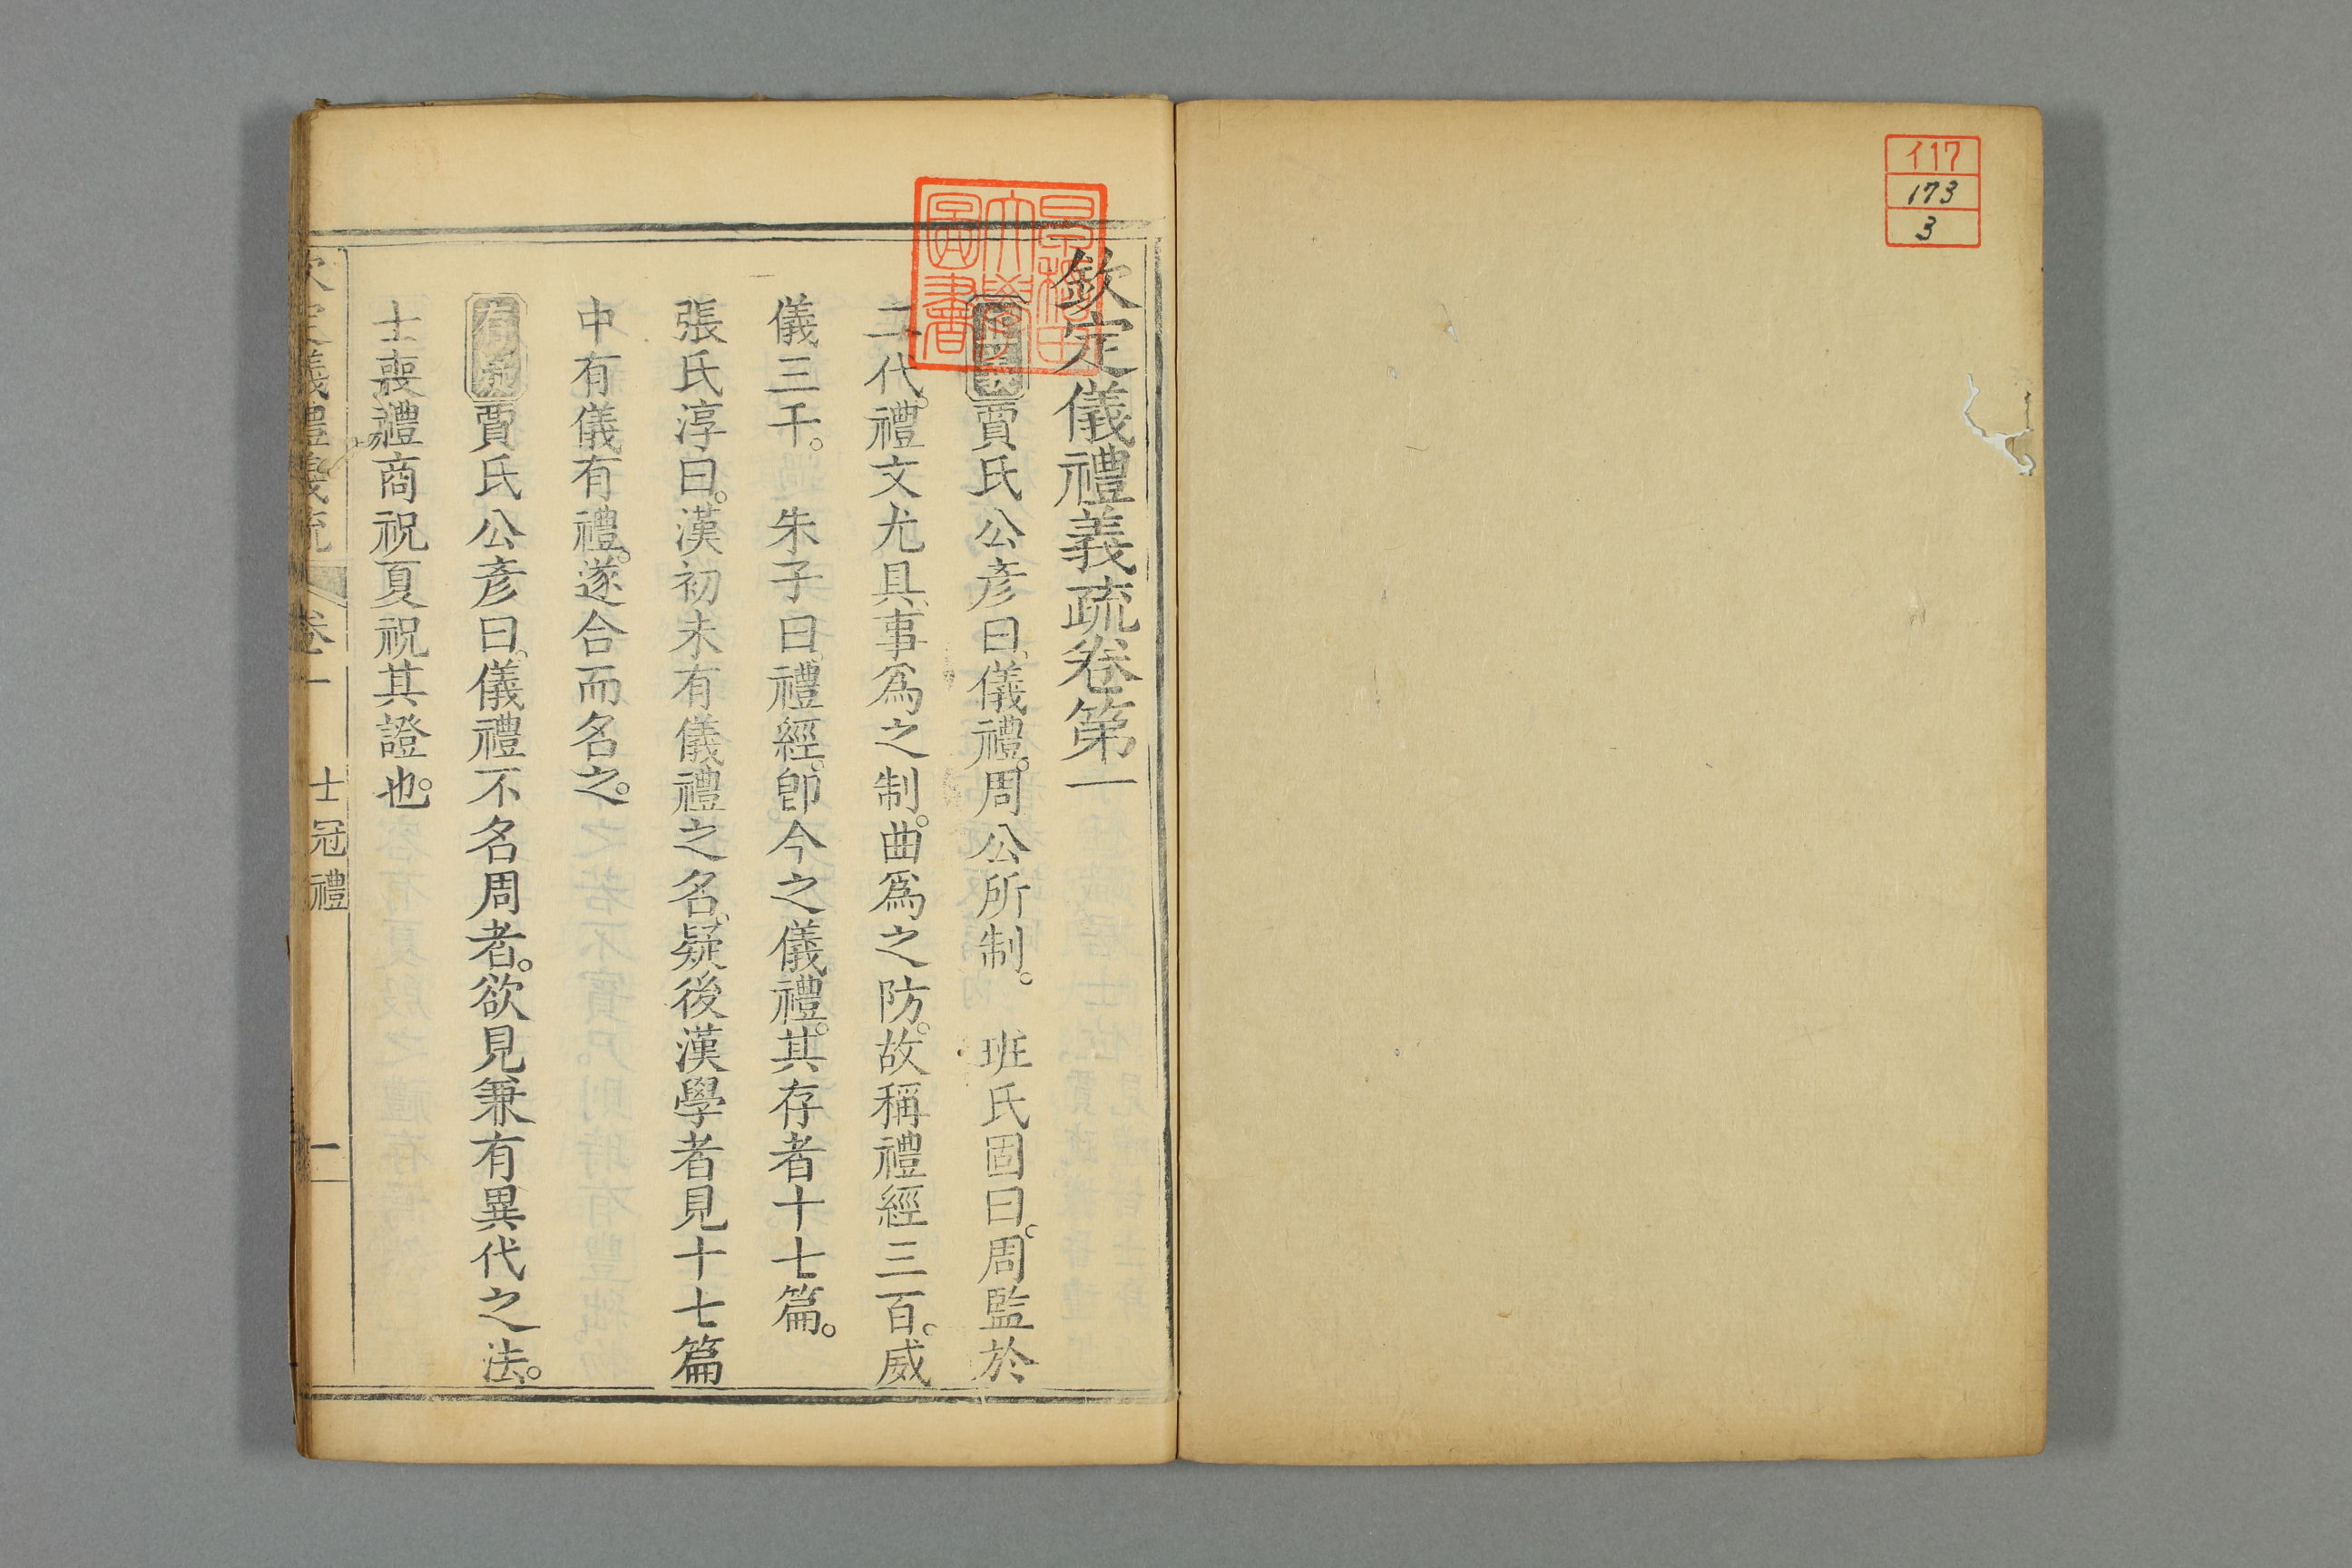 イ17
173
3
早稲田
大學
圖書
欽定儀禮義疏卷第一
賈氏公彥曰儀禮。周公所制。 班氏固曰。周監於
二代。禮文尤具、事爲之制。曲爲之防。故稱禮經三百。威
儀三千。 朱子曰。禮經。卽今之儀禮。其存者十七篇。
張氏淳曰。漢初未有儀禮之名。疑後漢學者見十七篇
中有儀有禮。遂合而名之。
存疑賈氏公彥曰。儀禮不名周者。欲見兼有異代之法。
士喪禮商祝夏祝其證也。
欽定儀禮義疏 卷一 士冠禮 一